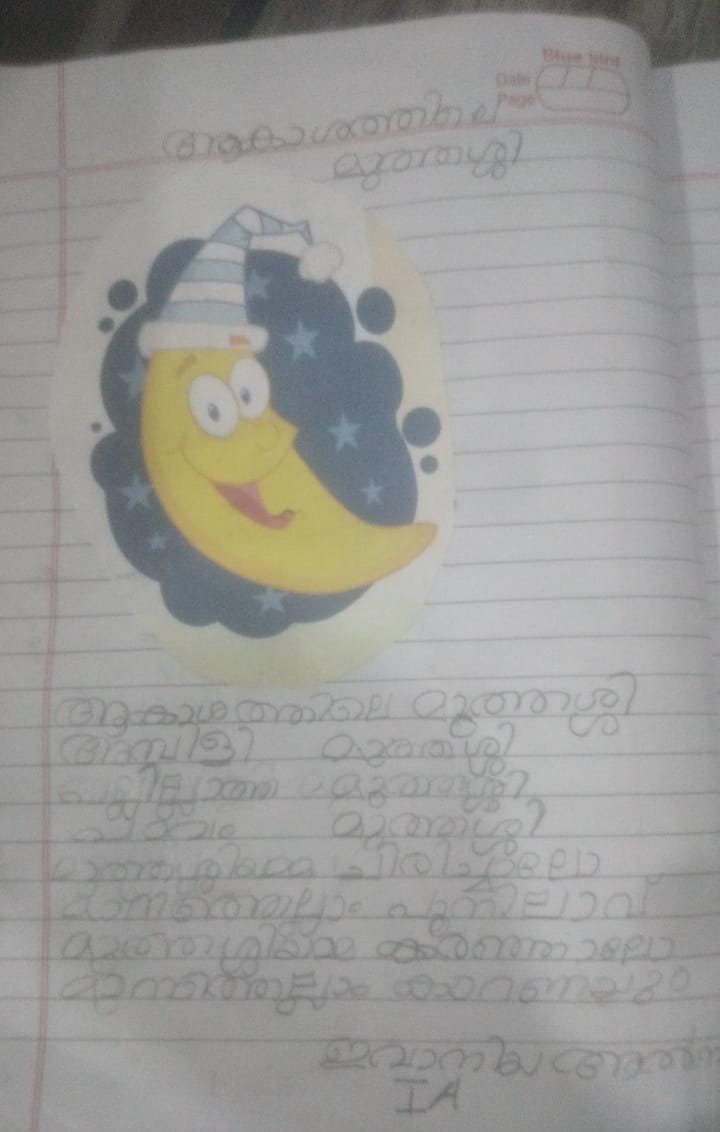 Blue bird
Date
Page
ആകാശത്തിലെ
മുത്തശ്ശി
ആകാശത്തിലെ മുത്തശ്ശി
അമ്പിളി മുത്തശ്ശി
പല്ലില്ലാത്ത മുത്തശ്ശി
പാവം മുത്തശ്ശി
മുത്തശ്ശിയമ്മ ചിരിച്ചാലോ
മാനത്തെല്ലാം പൂനിലാവ്
മുത്തശ്ശിയമ്മ കരഞ്ഞാലോ
ഇവാനിയ
I A